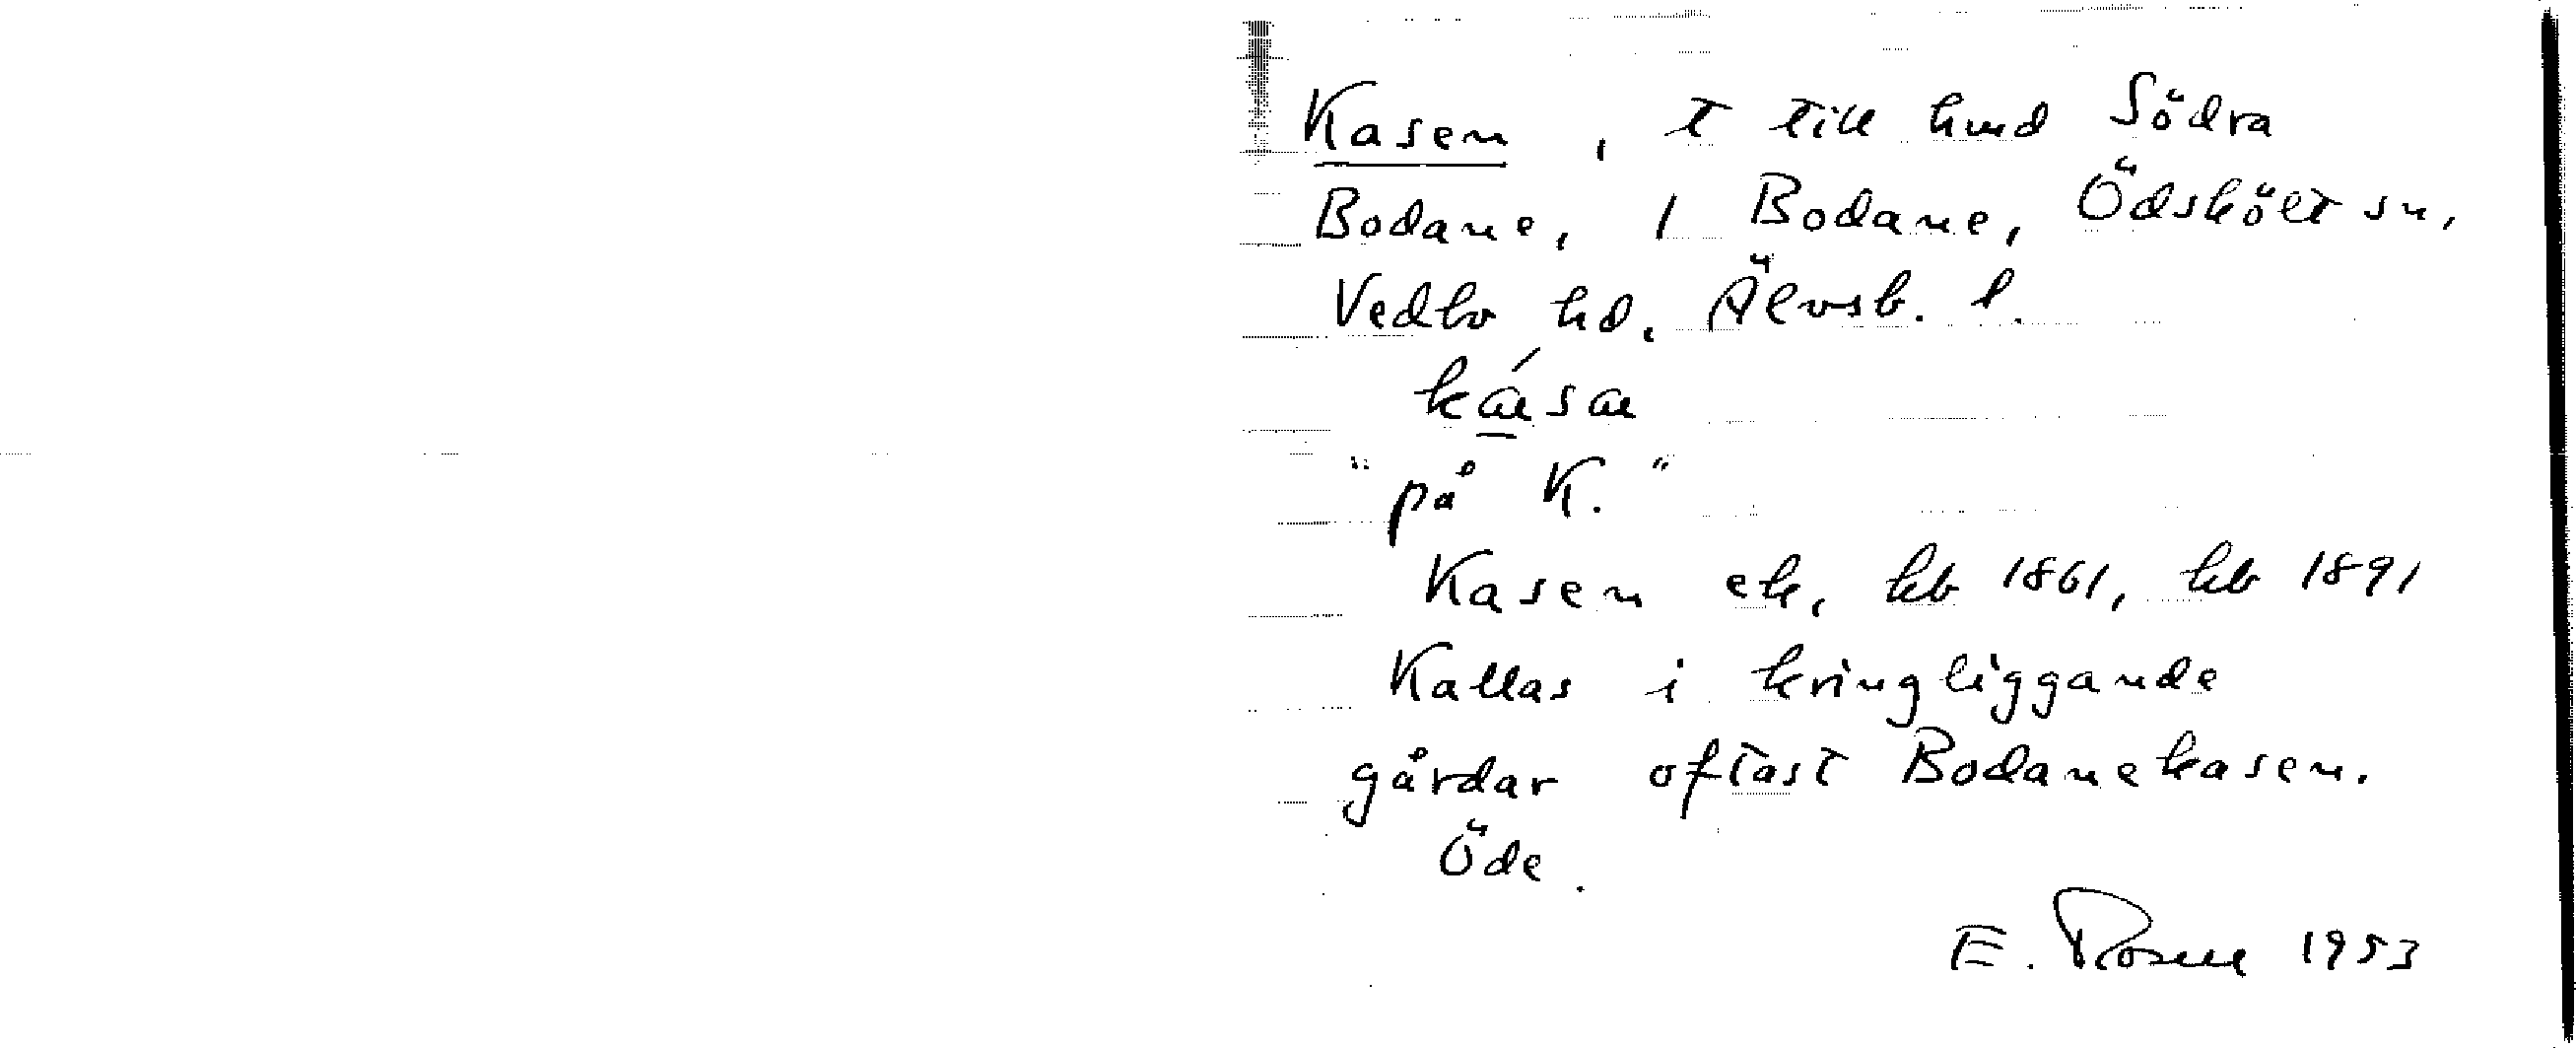 Kasen, t till hmd Södra
Bodane, 1 Bodane, Ödskölt sn,
Vedbo hd. Älvsb. l.
ká̱sa
"på K."
Kasen ek, hb 1861, hb 1891
Kallas i kringliggande
gårdar oftast Bodanekasen.
Öde.
E. Rosell 1953